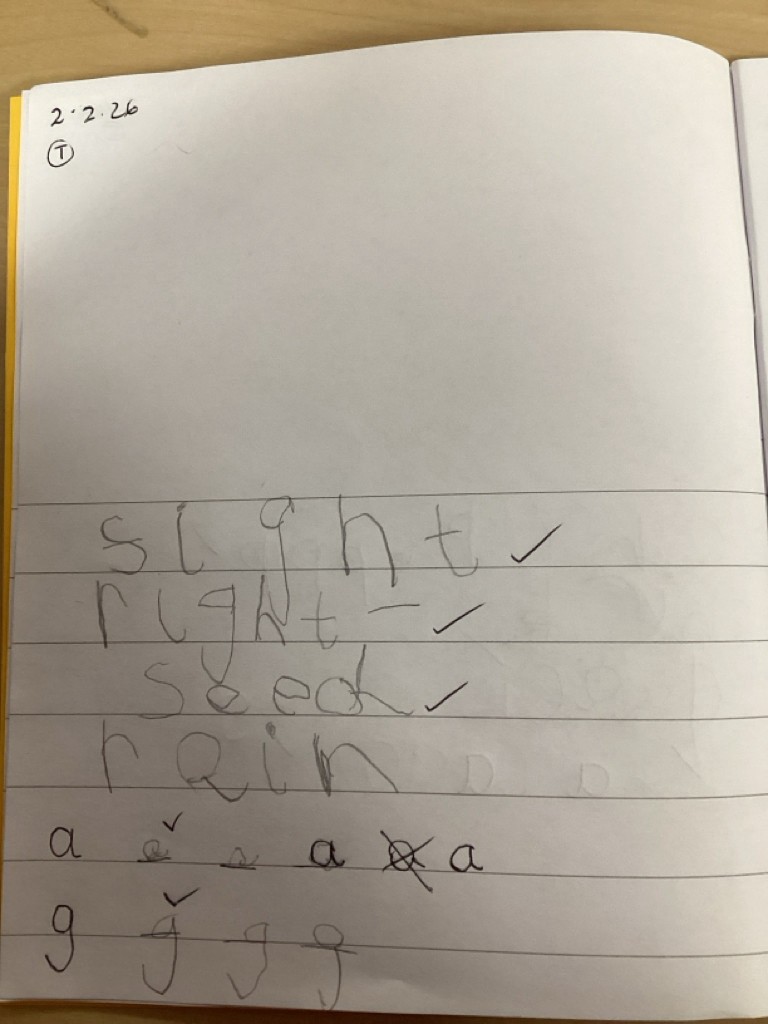 2.2.26
T
sight ✓
right - ✓
seed ✓
rain
a a a a a a
g g g g